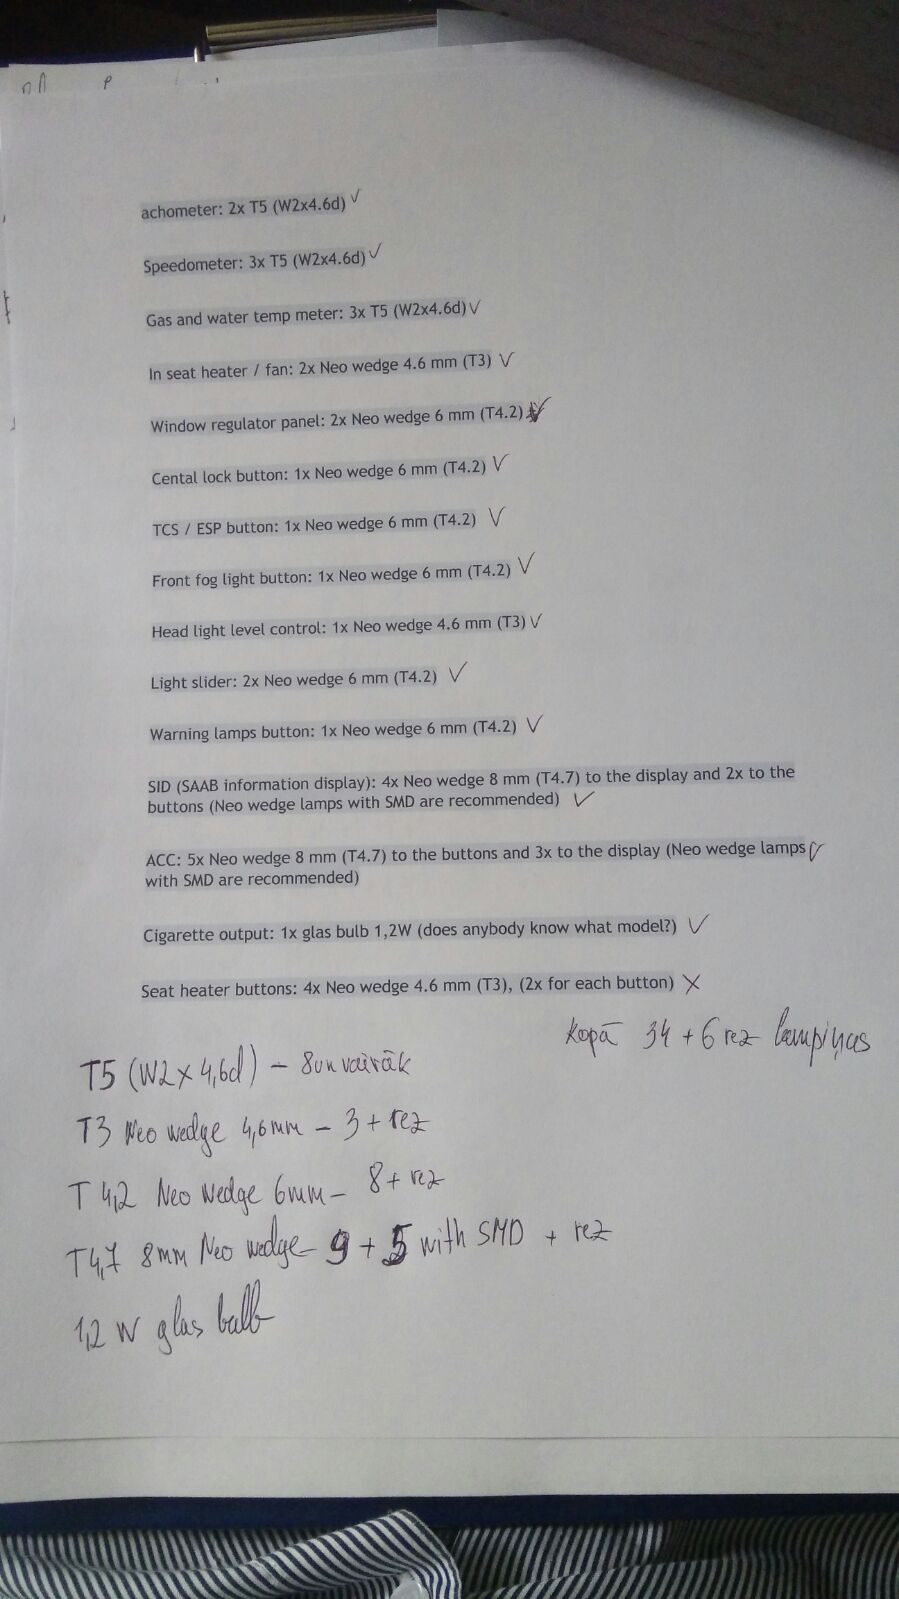 achometer: 2x T5 (W2x4.6d) ✓
Speedometer: 3x T5 (W2x4.6d) ✓
Gas and water temp meter: 3x T5 (W2x4.6d) ✓
In seat heater / fan: 2x Neo wedge 4.6 mm (T3) ✓
Window regulator panel: 2x Neo wedge 6 mm (T4.2) ✓
Cental lock button: 1x Neo wedge 6 mm (T4.2) ✓
TCS / ESP button: 1x Neo wedge 6 mm (T4.2) ✓
Front fog light button: 1x Neo wedge 6 mm (T4.2) ✓
Head light level control: 1x Neo wedge 4.6 mm (T3) ✓
Light slider: 2x Neo wedge 6 mm (T4.2) ✓
Warning lamps button: 1x Neo wedge 6 mm (T4.2) ✓
SID (SAAB information display): 4x Neo wedge 8 mm (T4.7) to the display and 2x to the
buttons (Neo wedge lamps with SMD are recommended) ✓
ACC: 5x Neo wedge 8 mm (T4.7) to the buttons and 3x to the display (Neo wedge lamps ✓
with SMD are recommended)
Cigarette output: 1x glas bulb 1,2W (does anybody know what model?) ✓
Seat heater buttons: 4x Neo wedge 4.6 mm (T3), (2x for each button) X
kopā 34 + 6 rez lampiņas
T5 (W2x4,6d) - 8 un vairāk
T3 Neo wedge 4,6mm - 3 + rez
T 4,2 Neo Wedge 6mm - 8 + rez
T4,7 8mm Neo wedge 9 + 5 with SMD + rez
1,2 W glas balb